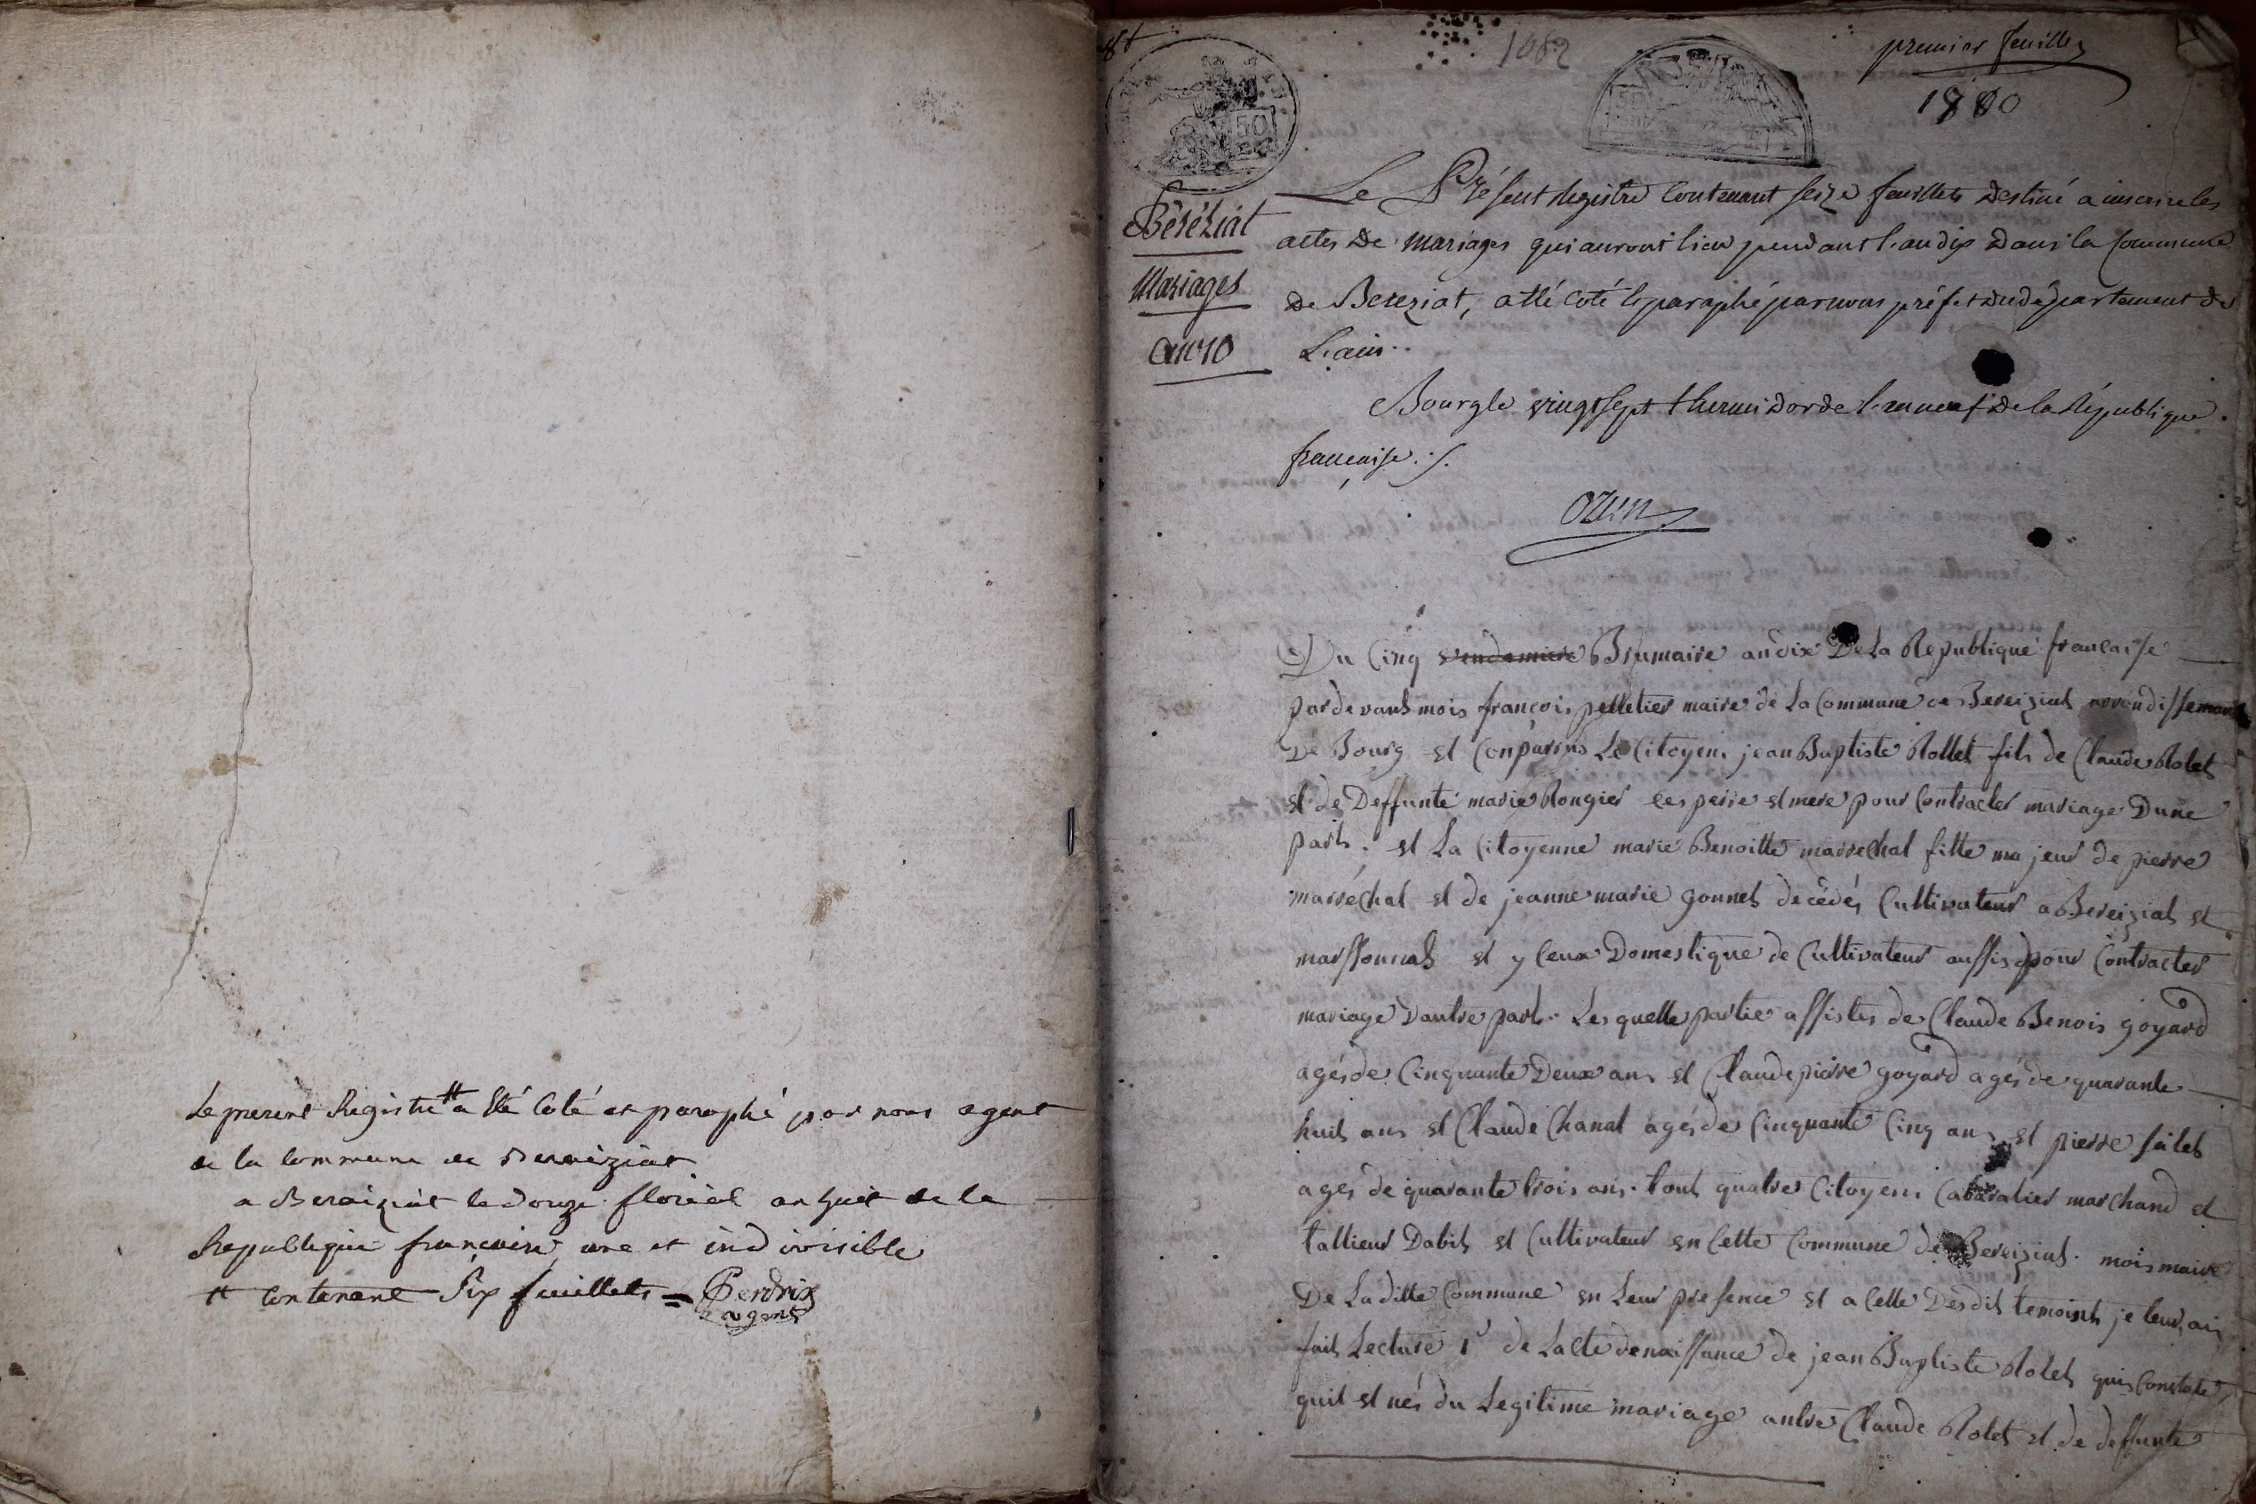 Le present Registre # a Eté Coté et paraphé par nous agent
de la Commune de Bereiziat
a Bereiziat le Douze floréal an huit de la
Republique francaise une et indivisible
# Contenant Six feuillets = Perdrix
agent
1082
premier feuillet
1800
50
Béréziat
Mariages
an 10
Le Présent Registre Contenant seize feuillets Destiné a inscrire les
actes De Mariages qui auront lieu pendant l'an dix Dans la Commune
De Bereziat, a été Coté & paraphé par nous préfet du département de
L'ain..
Bourg le vingt sept thermidor de l'an neuf De la République
française ./.
Ozun
Du Cinq vendemiere Brumaire an dix De La Republique francaise
pardevant mois françois pelletier maire de La Commune de Bereiziat arrondissement
De Bourg et Conparus Le Citoyens jean Baptiste Rollet fils de Claude Rolet
et de Deffunte marie Rongier ces peire et mere pour Contracter mariage Dune
part. et La Citoyenne marie Benoitte marrechal fille majeur de pierre
marréchal et de jeanne marie gonnet decédés Cultivateur a Bereiziat et
marssonnat et y Ceux Domestique de Cultivateur aussis pour Contracter
mariage Dautre part. Les quelle partie assistes de Claude Benois goyard
agés de Cinquante Deux ans et Claude pierre goyard agés de quarante
huit ans et Claude Chanal agés de Cinquante Cinq ans et pierre failet
agés de quarante trois ans. tout quatre Citoyens Cabaratier marchand et
tallieur Dabit et Cultivateur en Cette Commune de Bereiziat. mois maire
De La ditte Commune en Leur presence et a Celle Desdit temoint je leur ai
fait Lecture 1° de Lacte de naissance de jean Baptiste Rolet qui Constate
quil et nés du Legitime mariage antre Claude Rolet et de deffunte